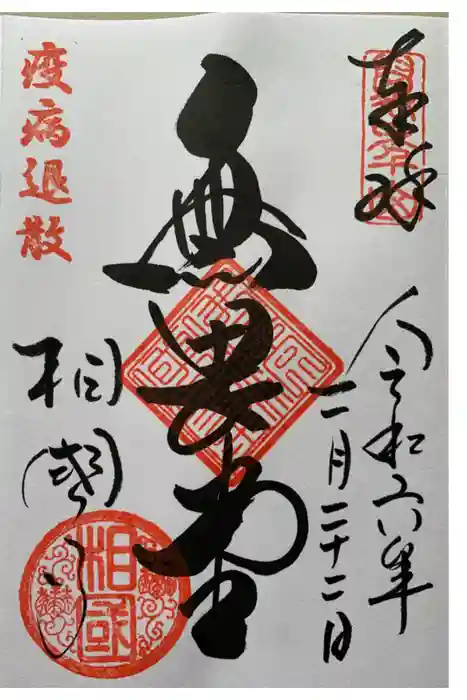 奉拝
令和六年
二月二十二日
無畏堂
疫病退散
相國寺
相国